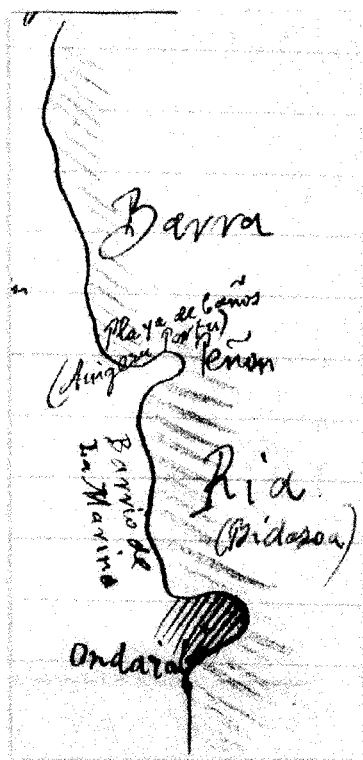 Barra
Playa de baños
(Aingeru Portu)
Peñon
Barrio de
La Marina
Ria
(Bidasoa)
Ondaral